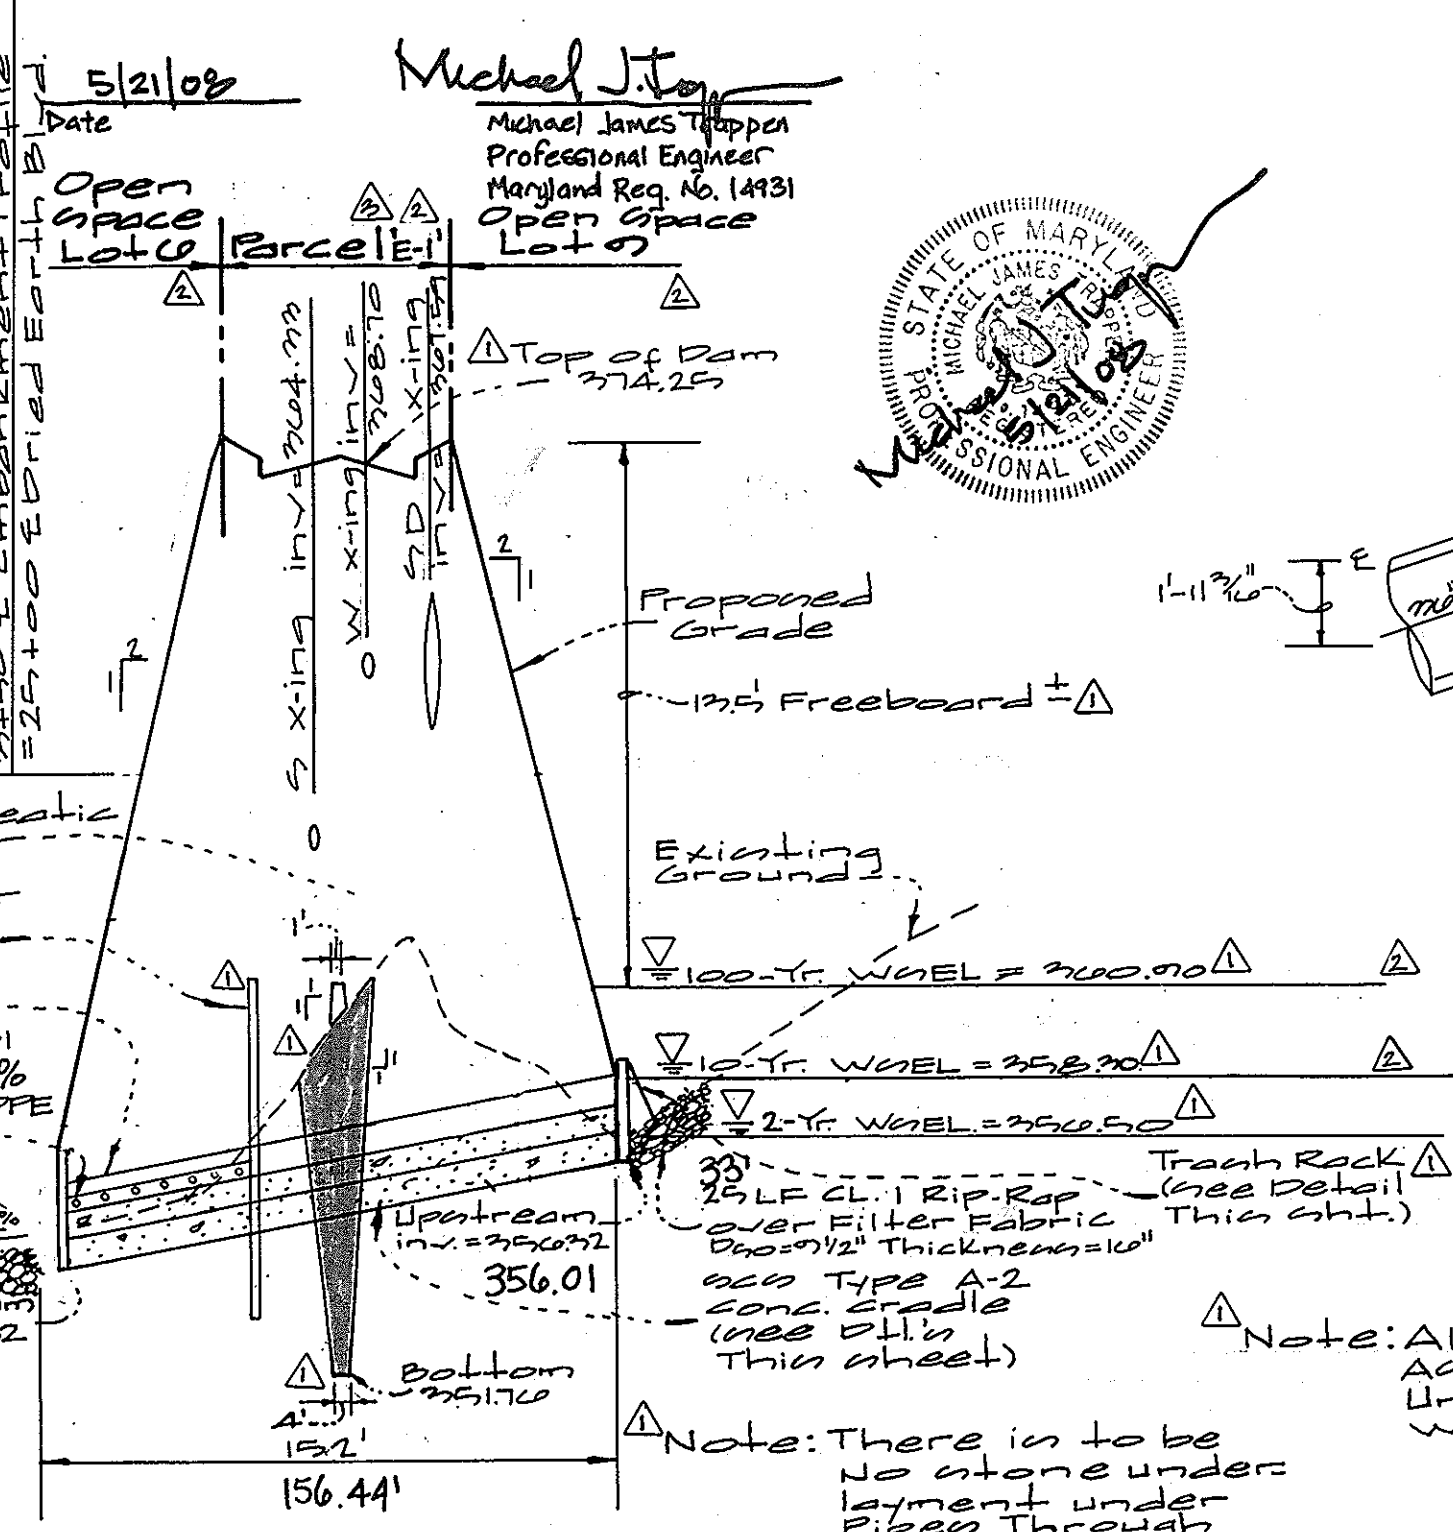 5/21/08
Date
Michael James Trappen
Professional Engineer
Maryland Reg. No. 14931
Open
Space
Lot 6
Parcel 'E-1'
Open Space
Lot 9
3
2
2
2
STATE OF MARYLAND
MICHAEL JAMES TRAPPEN
REGISTERED
PROFESSIONAL ENGINEER
5/21/08
=25+00 Buried Earth
S x-ing inv=
W x-ing inv=
SD x-ing
inv=
1
Top of Dam
374.25
2
1
2
1
Proposed
Grade
1'-11 3/16"
13.5' Freeboard ± 1
Existing
Ground
1'
1
1
1
1
1
100-Yr. WSEL = 360.90 1
2
10-Yr. WSEL = 358.30 1
2
2-Yr. WSEL. = 356.50 1
Trash Rack 1
(See Detail
This Sht.)
33'
25 LF CL. 1 Rip-Rap
over Filter Fabric
D50=9 1/2" Thickness=16"
Upstream
inv.=356.32
356.01
SCS Type A-2
Conc. Cradle
(See Dtl.'s
This Sheet)
1
Bottom
351.76
4'
152'
156.44'
1
Note: There is to be
No stone under-
layment under
Pipes Through
1
Note: